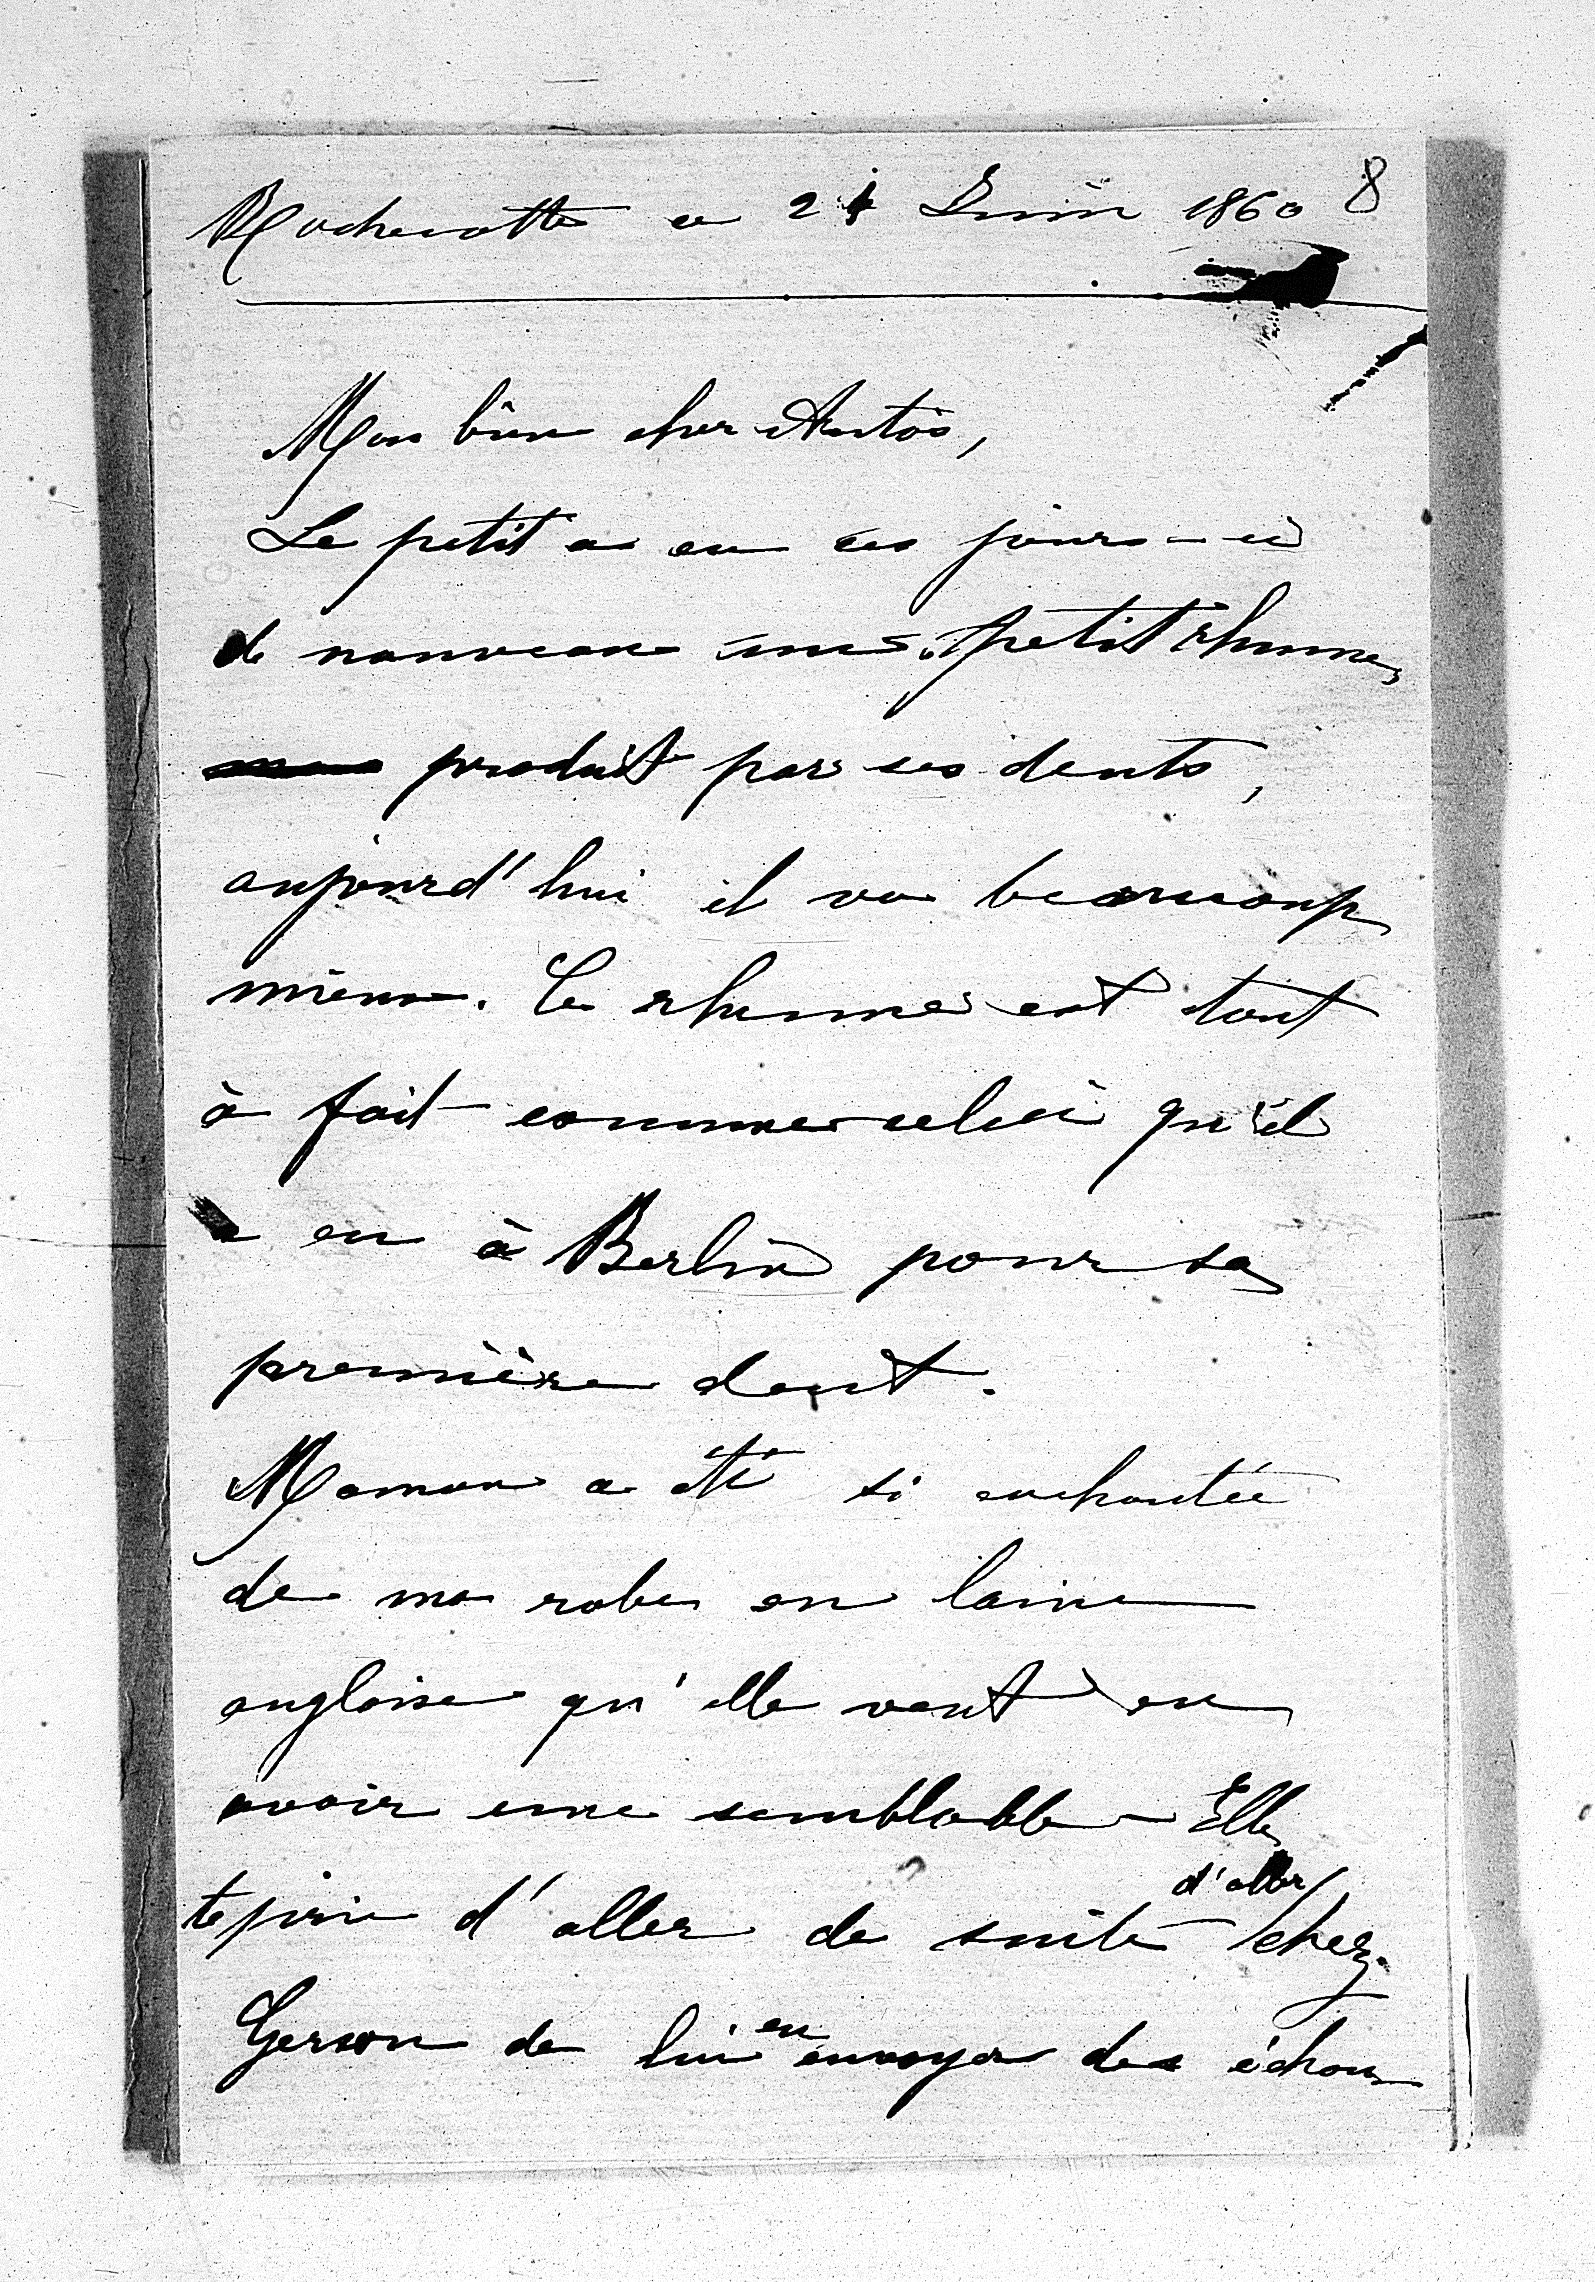 Rochecotte ce 24 Juin 1860 8
Mon bien cher Antoin,
Le petit a eu ces jours-ci
de nouveau un petit rhume,
produit par ses dents,
aujourd'hui il va beaucoup
mieux. Ce rhume est tout
à fait comme celui qu'il
a eu à Berlin pour sa
première dent.
Maman a été si enchantée
de ma robe en laine
anglaise qu'elle veut en
avoir une semblable – Elle
te prie d'aller de suite d'aller chez
Gerson de lui en envoyer des échan